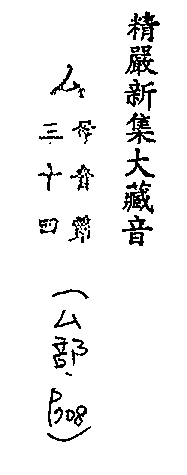 精嚴新集大藏音
厶
三十四
(厶部.P508)